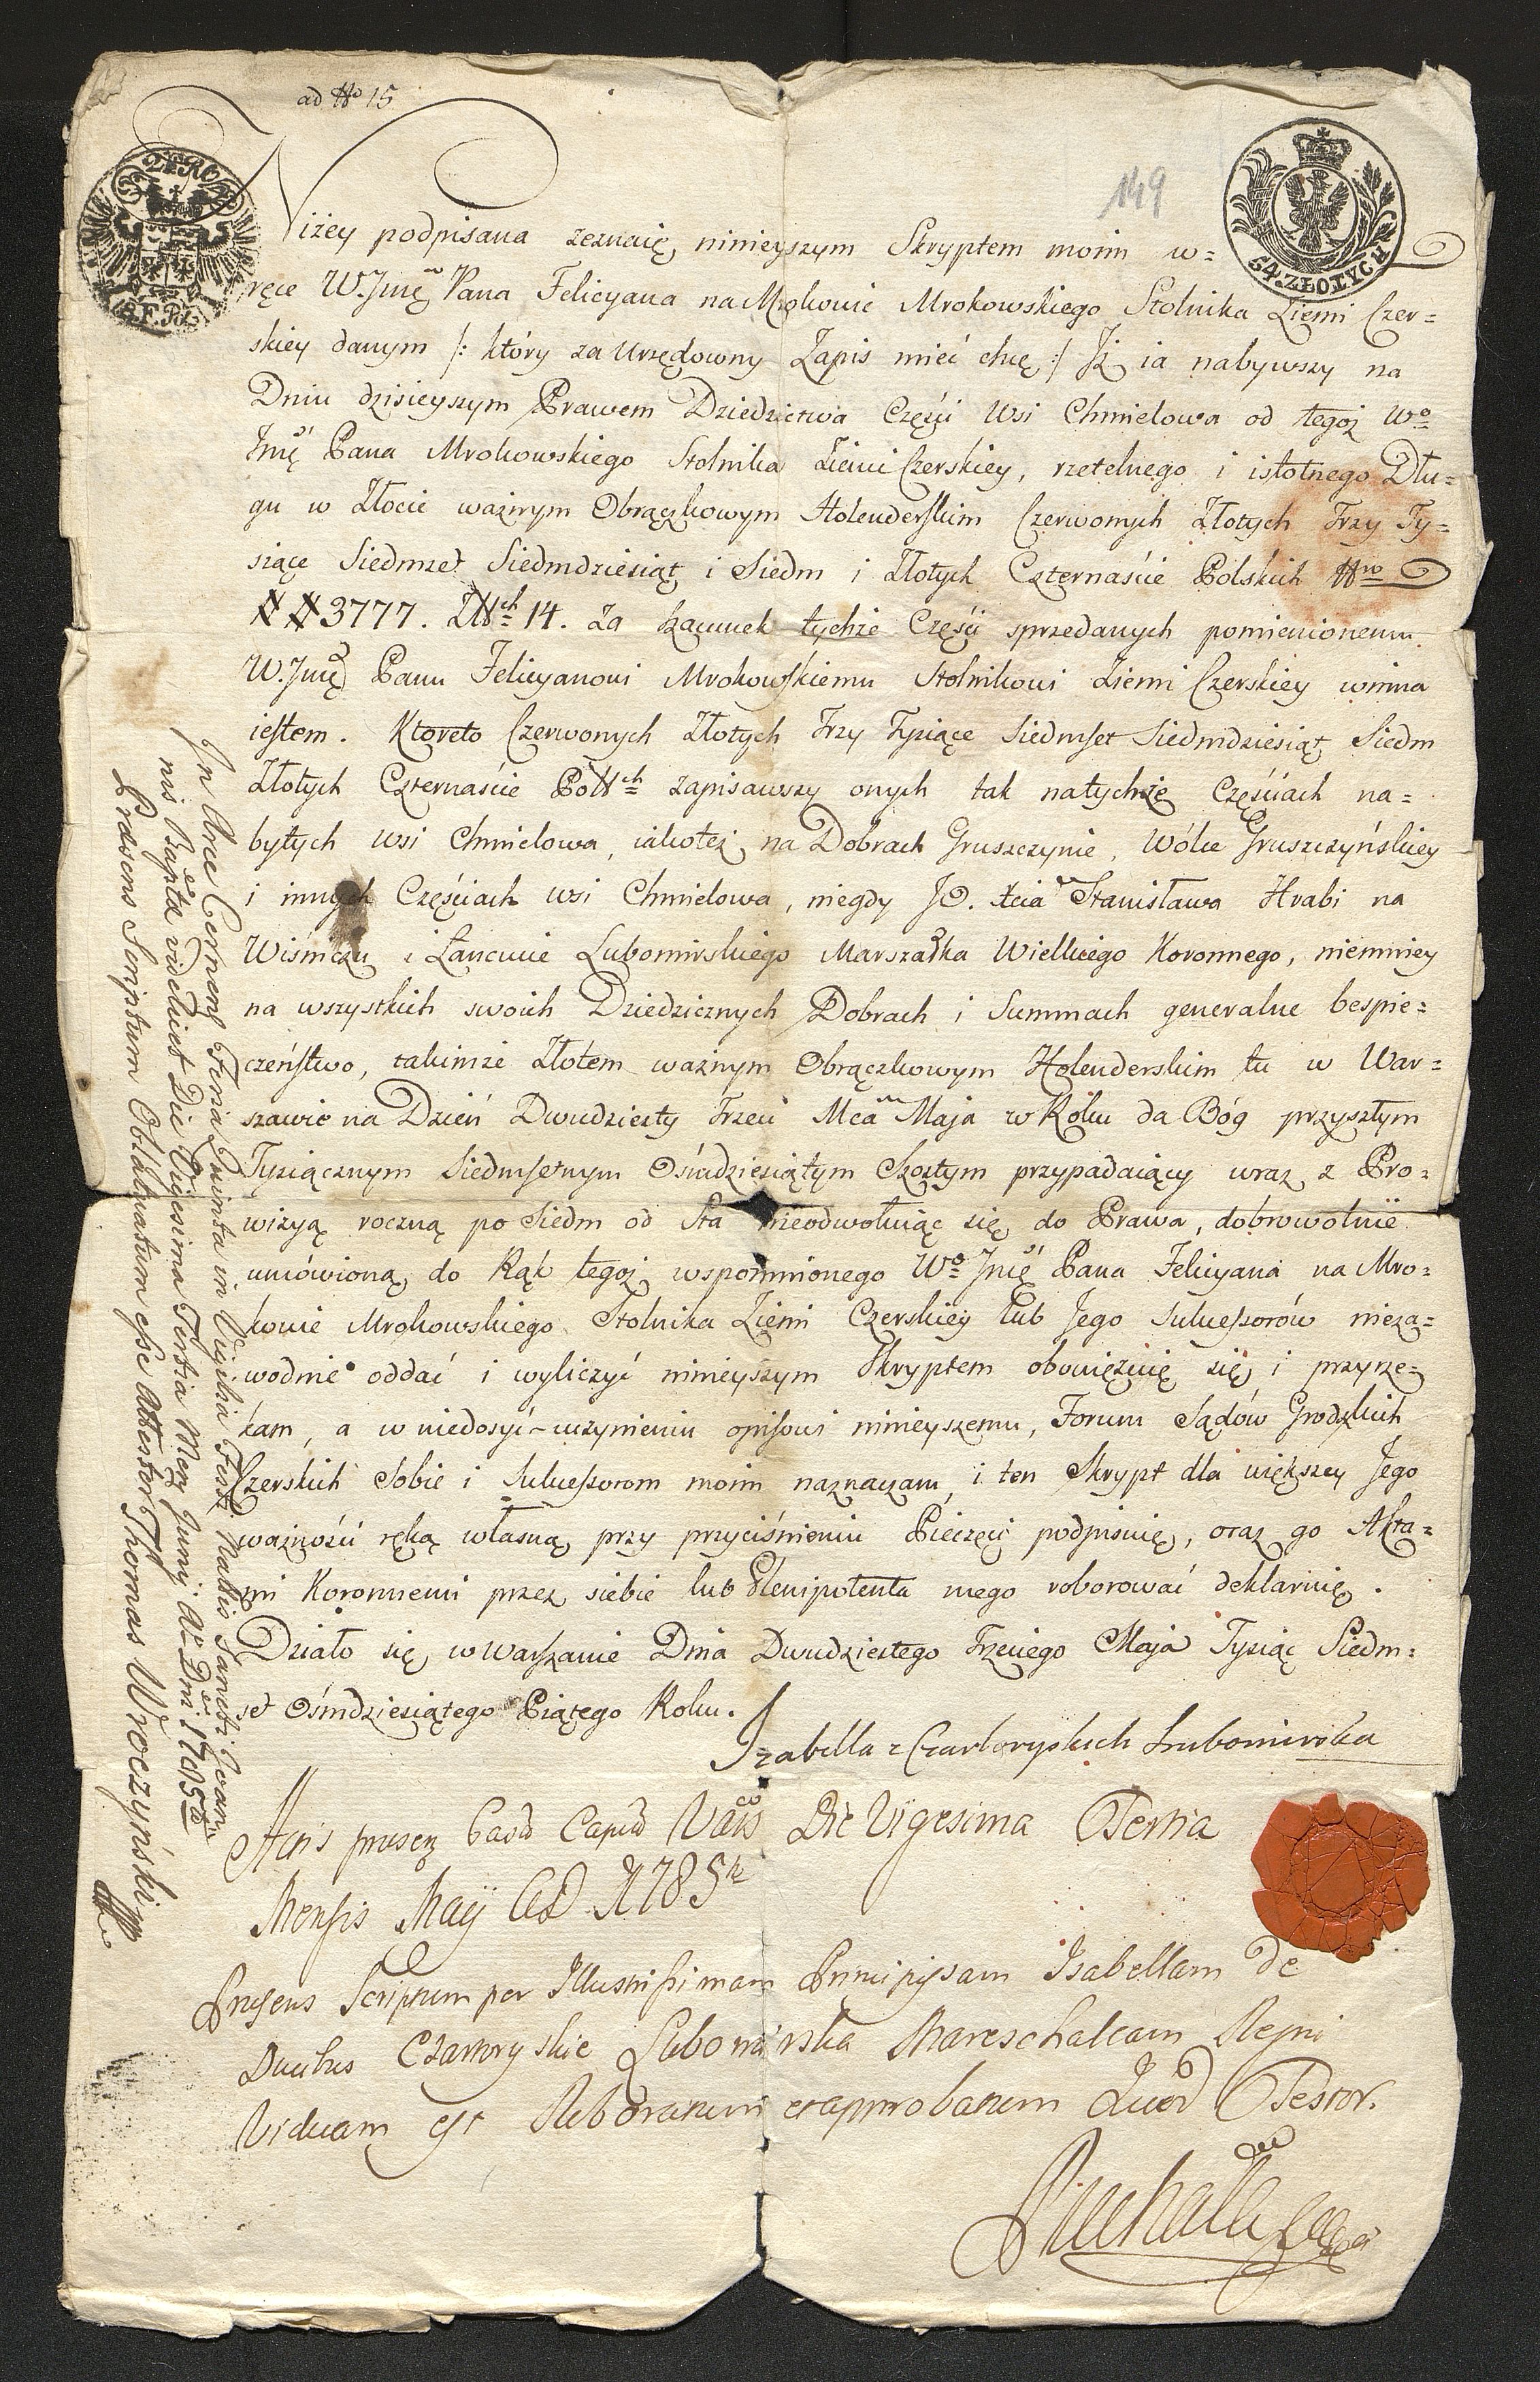 ad Nro 15
149
24 Kr
18 F. Rh.
54. ZŁOTYCH
Niżey podpisana zeznaię ninieyszym Skryptem moim w=
ręce W. Jmę Pana Felicyana na Mrokowie Mrokowskiego Stolnika Ziemi Czer=
skiey danym /: który za Urzędowny Zapis mieć chcę :/ Jż ia nabywszy na
Dniu dzisieyszym Prawem Dziedzictwa Części Wsi Chmielowa od tegoż Wo
Jmę Pana Mrokowskiego Stolnika Ziemi Czerskiey, rzetelnego i istotnego Dłu=
gu w Złocie ważnym Obrączkowym Holenderskim Czerwonych Złotych Trzy Ty=
siące Siedmset Siedmdziesiąt i Siedm i Złotych Czternaście Polskich Nro
## 3777. Złłch 14. za szacunek tychże Części sprzedanych pomienionemu
W. Jmę Panu Felicyanowi Mrokowskiemu Stolnikowi Ziemi Czerskiey winna
iestem. Ktoreto Czerwonych Złotych Trzy Tysiące Siedmset Siedmdziesiąt Siedm
Złotych Czternaście Polłch zapisawszy onych tak natychże Częściach na=
bytych Wsi Chmielowa, iakoteż na Dobrach Gruszczynie, Wólce Gruszczyńskiey
i innych Częściach Wsi Chmielowa, niegdy JO. Xcia Stanisława Hrabi na
Wiśniczu i Łancucie Lubomirskiego Marszałka Wielkiego Koronnego, niemniey
na wszystkich swoich Dziedzicznych Dobrach i Summach generalne bespie=
czeństwo, takimże Złotem ważnym Obrączkowym Holenderskim tu w War=
szawie na Dzień Dwudziesty Trzeci Mca Maja w Roku da Bóg przyszłym
Tysiącznym Siedmsetnym Ośmdziesiątym Szostym przypadaiący wraz z Pro=
wizyą roczną po Siedm od Sta nieodwołuiąc się do Prawa, dobrowolnie
umówioną, do Rąk tegoż wspomnionego Wo Jmę Pana Felicyana na Mro=
kowie Mrokowskiego Stolnika Ziemi Czerskiey lub Jego Sukcessorów nieza=
wodnie oddać i wyliczyć ninieyszym Skryptem obowięzuię się i przyrze=
kam, a w niedosyć-uczynieniu opisowi ninieyszemu, Forum Sądów Grodzkich
Czerskich Sobie i Sukcessorom moim naznaczam, i ten Skrypt dla większey Jego
ważności ręką własną przy przyciśnieniu Pieczęci podpisuię, oraz go Akta=
mi Koronnemi przez siebie lub Plenipotenta mego roborować deklaruię.
Działo się w Warszawie Dnia Dwudziestego Trzeciego Maja Tysiąc Siedm=
set Ośmdziesiątego Piątego Roku.
Izabella z Czartoryskich Lubomirska
Actis presez Cast Capit Vars Die Vigesima Tertia
Mensis Maÿ Ad 1785to
Prusens Scriptum per Illustrissimam Principissam Isabellam de
Ducibus Czartoryskie Lubomirska Mareschalcam Regni
Viduam est Roboratum et approbatum Quod Testor.
In Arce Cernen Feria Quinta in Vigilia Festi Natis Sancti Joan=
nis Bapta videlicet Die Vigesima Tertia Mez Junij Ao Dni 1785to
Præsens Scriptum Oblatum esse Attestor Thomas Wroczyński